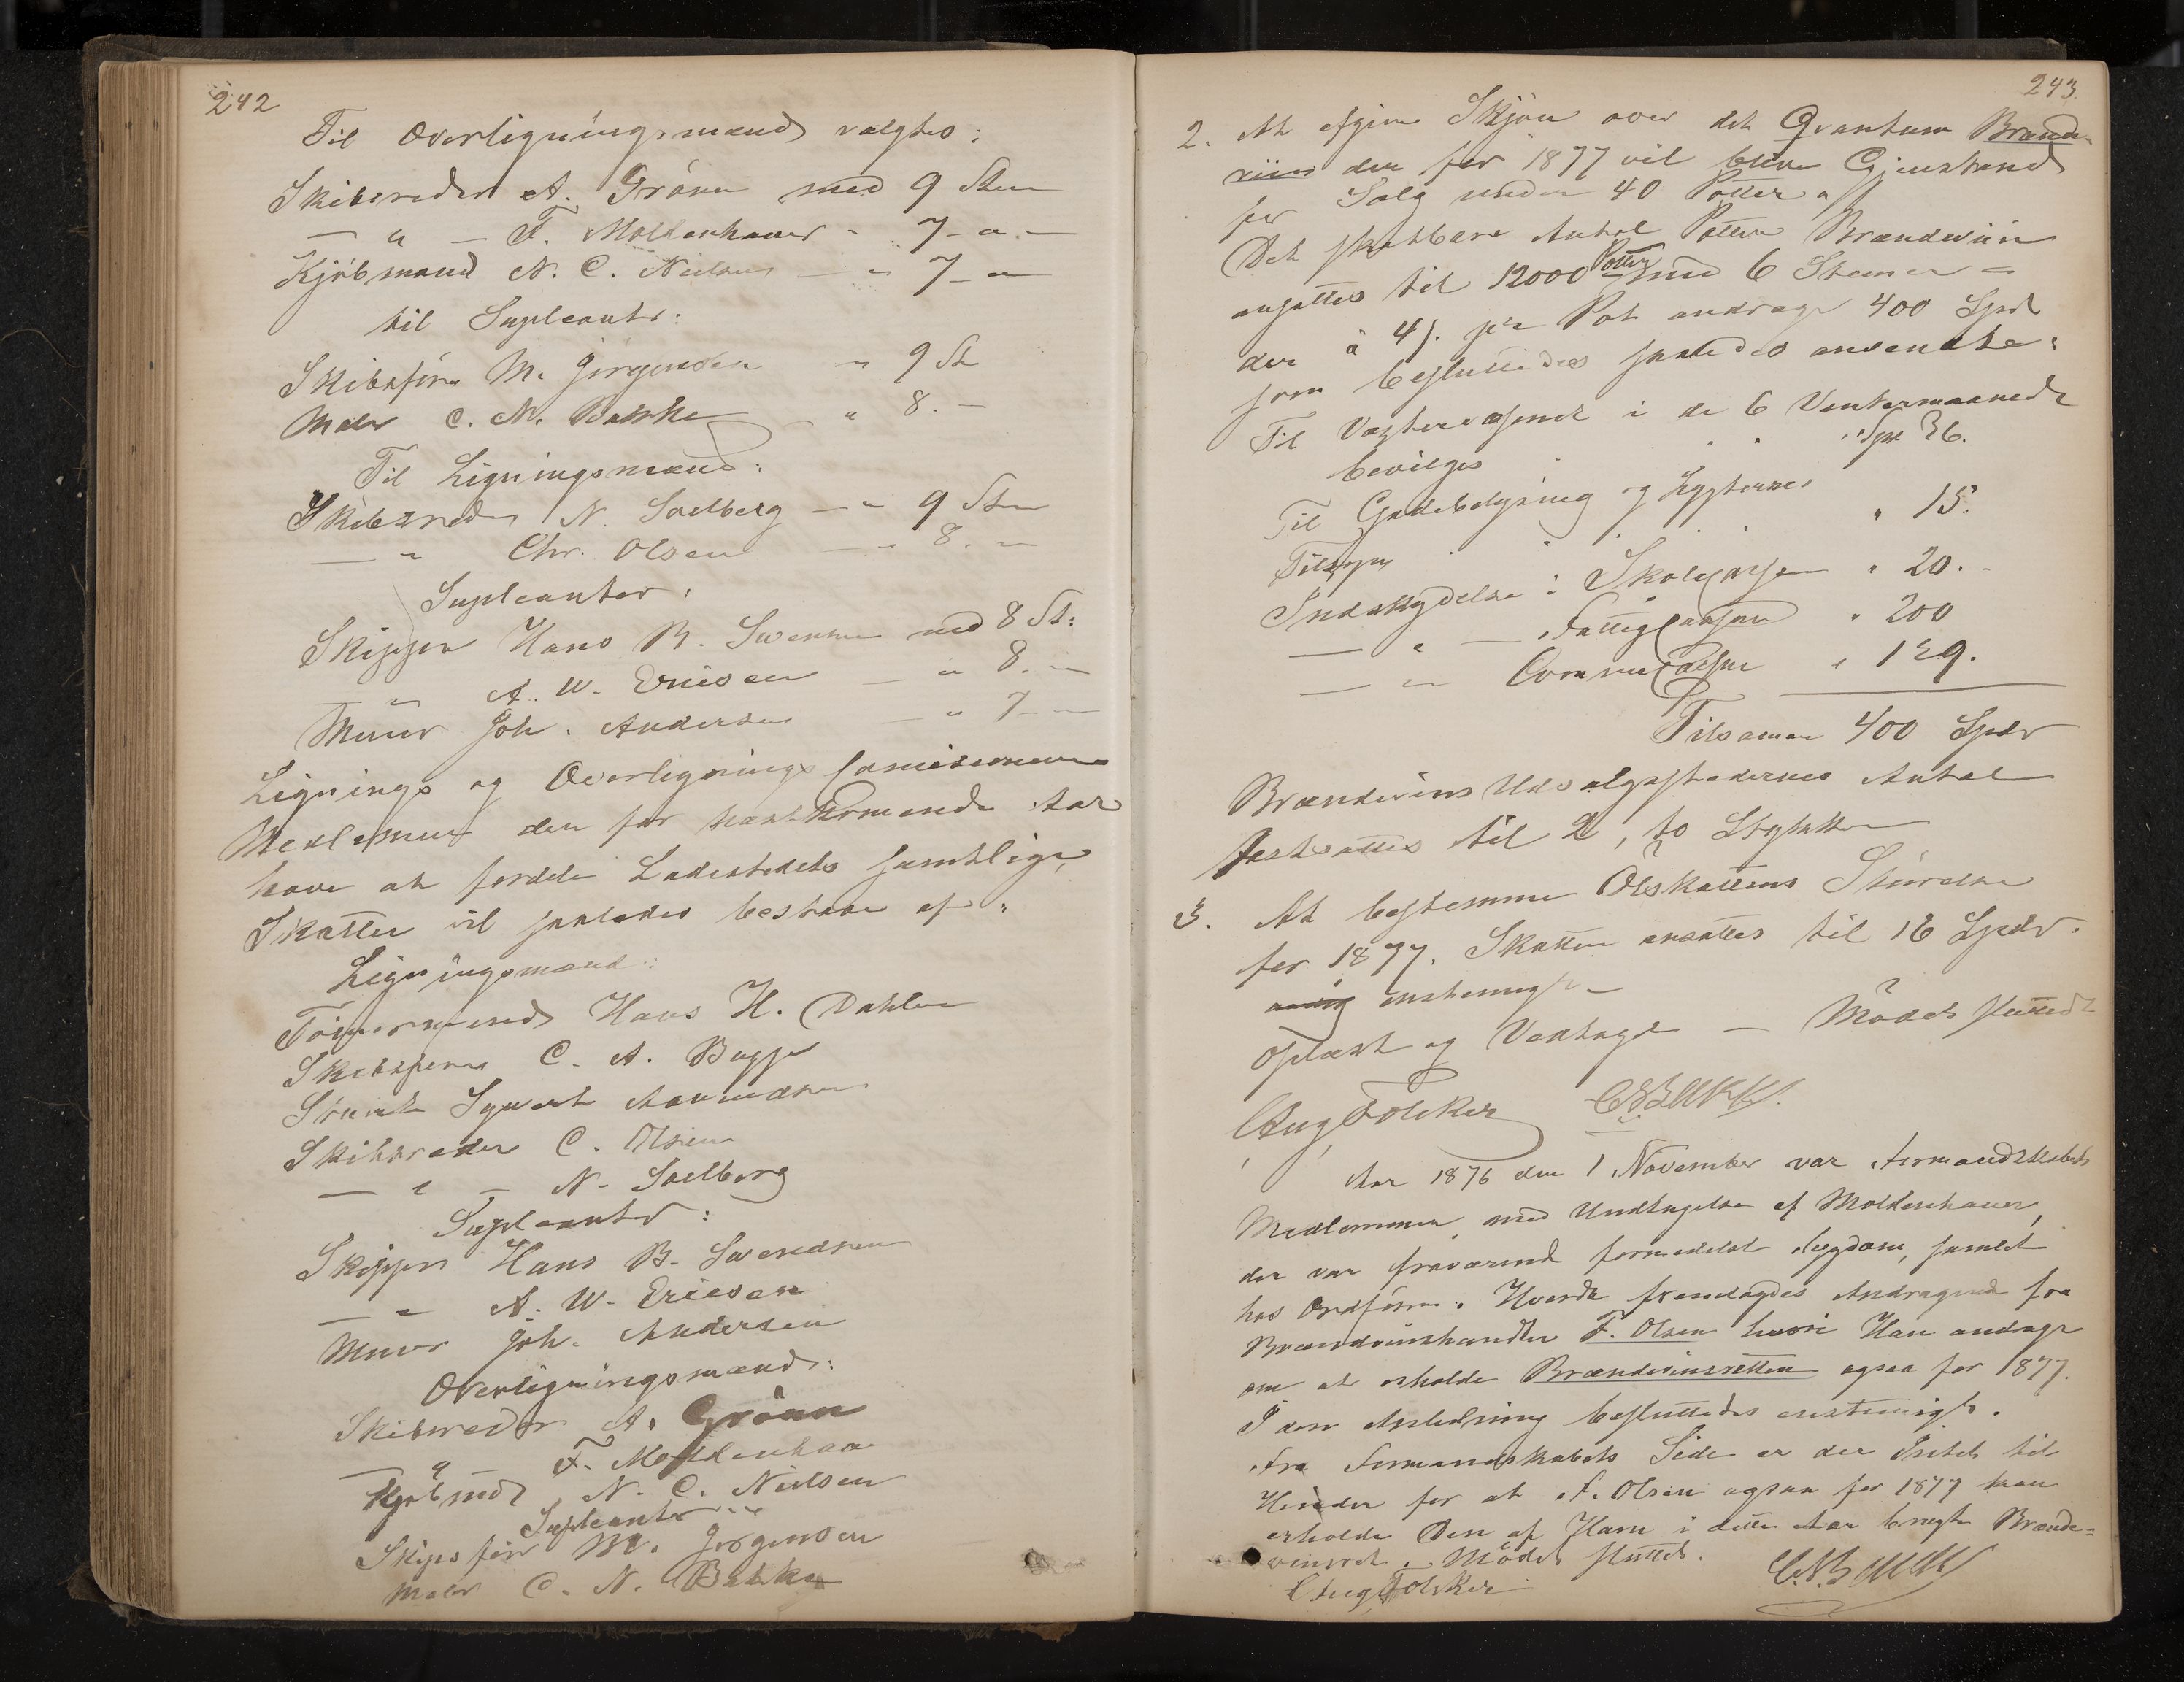 242
Til Overligningsmænd valgtes:
Skibsreder A. Grönn med 9 Stem
— " — F. Moldenhauer " 7 — " —
Kjöbmand N. C. Nielsen — " 7 — "
til Supleanter:
Skibsförer M. Jörgensen " 9 St
Maler C. N. Bakke " 8. —
Til Ligningsmænd:
Skibsreder N. Soelberg — " 9 Stem
— " Chr. Olsen — " 8. —
Supleanter:
Skipper Hans B. Svensen med 8 St:
— " A. W. Ericsen — " 8. —
Murer Joh. Andersen — " 7 —
Lignings og Overlignings
Medlemmer der for næstkommende Aar
have at fordele Ladestedets samtlige
Skatter vil saaledes bestaae af:
Ligningsmænd:
Tömmermand Hans H. Dahler
Skibsförer C. A. Bugge
Sivert Aanundsen
Skibsreder C. Olsen
— " — N. Soelberg
Supleanter:
Skipper Hans B. Svendsen
— " A. W. Ericsen
Murer Joh. Andersen
Overligningsmænd:
Skibsreder A. Grönn
— " — F. Moldenhauer
Kjöbmd N. C. Nielsen
Supleanter
Skipsförer M. Jörgensen
Maler C. N. Bakke
243.
2. At afgive Skjön over det Qvantum Brænde-
viin der for 1877 vil blive Gjenstand
for Salg under 40 Potter
Det skatbare Antal Potter Brændeviin
ansattes til 12000 Potter med 6 Stemer —
der à 4 s. pr Pot andrager 400 Spd
som besluttedes saaledes anvendte:
Til Vægtervæsenet i de 6 Vintermaaneder
bevilges " Spd 26.
Til Gadebelysning og Lygternes
Tilsyn " 15.
Indskydelse i Skolecassen " 20.
— " — Fattigcassen " 200
— " — Commecassen " 139.
Tilsamen 400 Spdr
Brændevins Udsalgsstedernes Antal
fastsattes til 2, to
3. At bestemme Ölskattens Störrelse
for 1877. Skatten ansattes til 16 Spdr.
enstemmigt —
Oplæst og Vedtaget — Mödet sluttedt
Aug Folcker C.N. Bakke
Aar 1876 den 1 November var Formandskabets
Medlemmer, med Undtagelse af Moldenhauer,
der var fraværend formedelst Sygdom, samlet
hos Ordföreren. Hvorda fremlagdes Andragende fra
Brændevinshandler F. Olsen hvori Han andrager
om at erholde Brændevinsretten ogsaa for 1877.
I den Anledning besluttedes enstemigt.
Fra Formandskabets Side er der Intet til
Hinder for at F. Olsen ogsaa for 1877 kan
erholde Den af Ham i dette Aar brugte Brænde-
vinsret. Mödet sluttet.
Aug Folcker C.N. Bakke